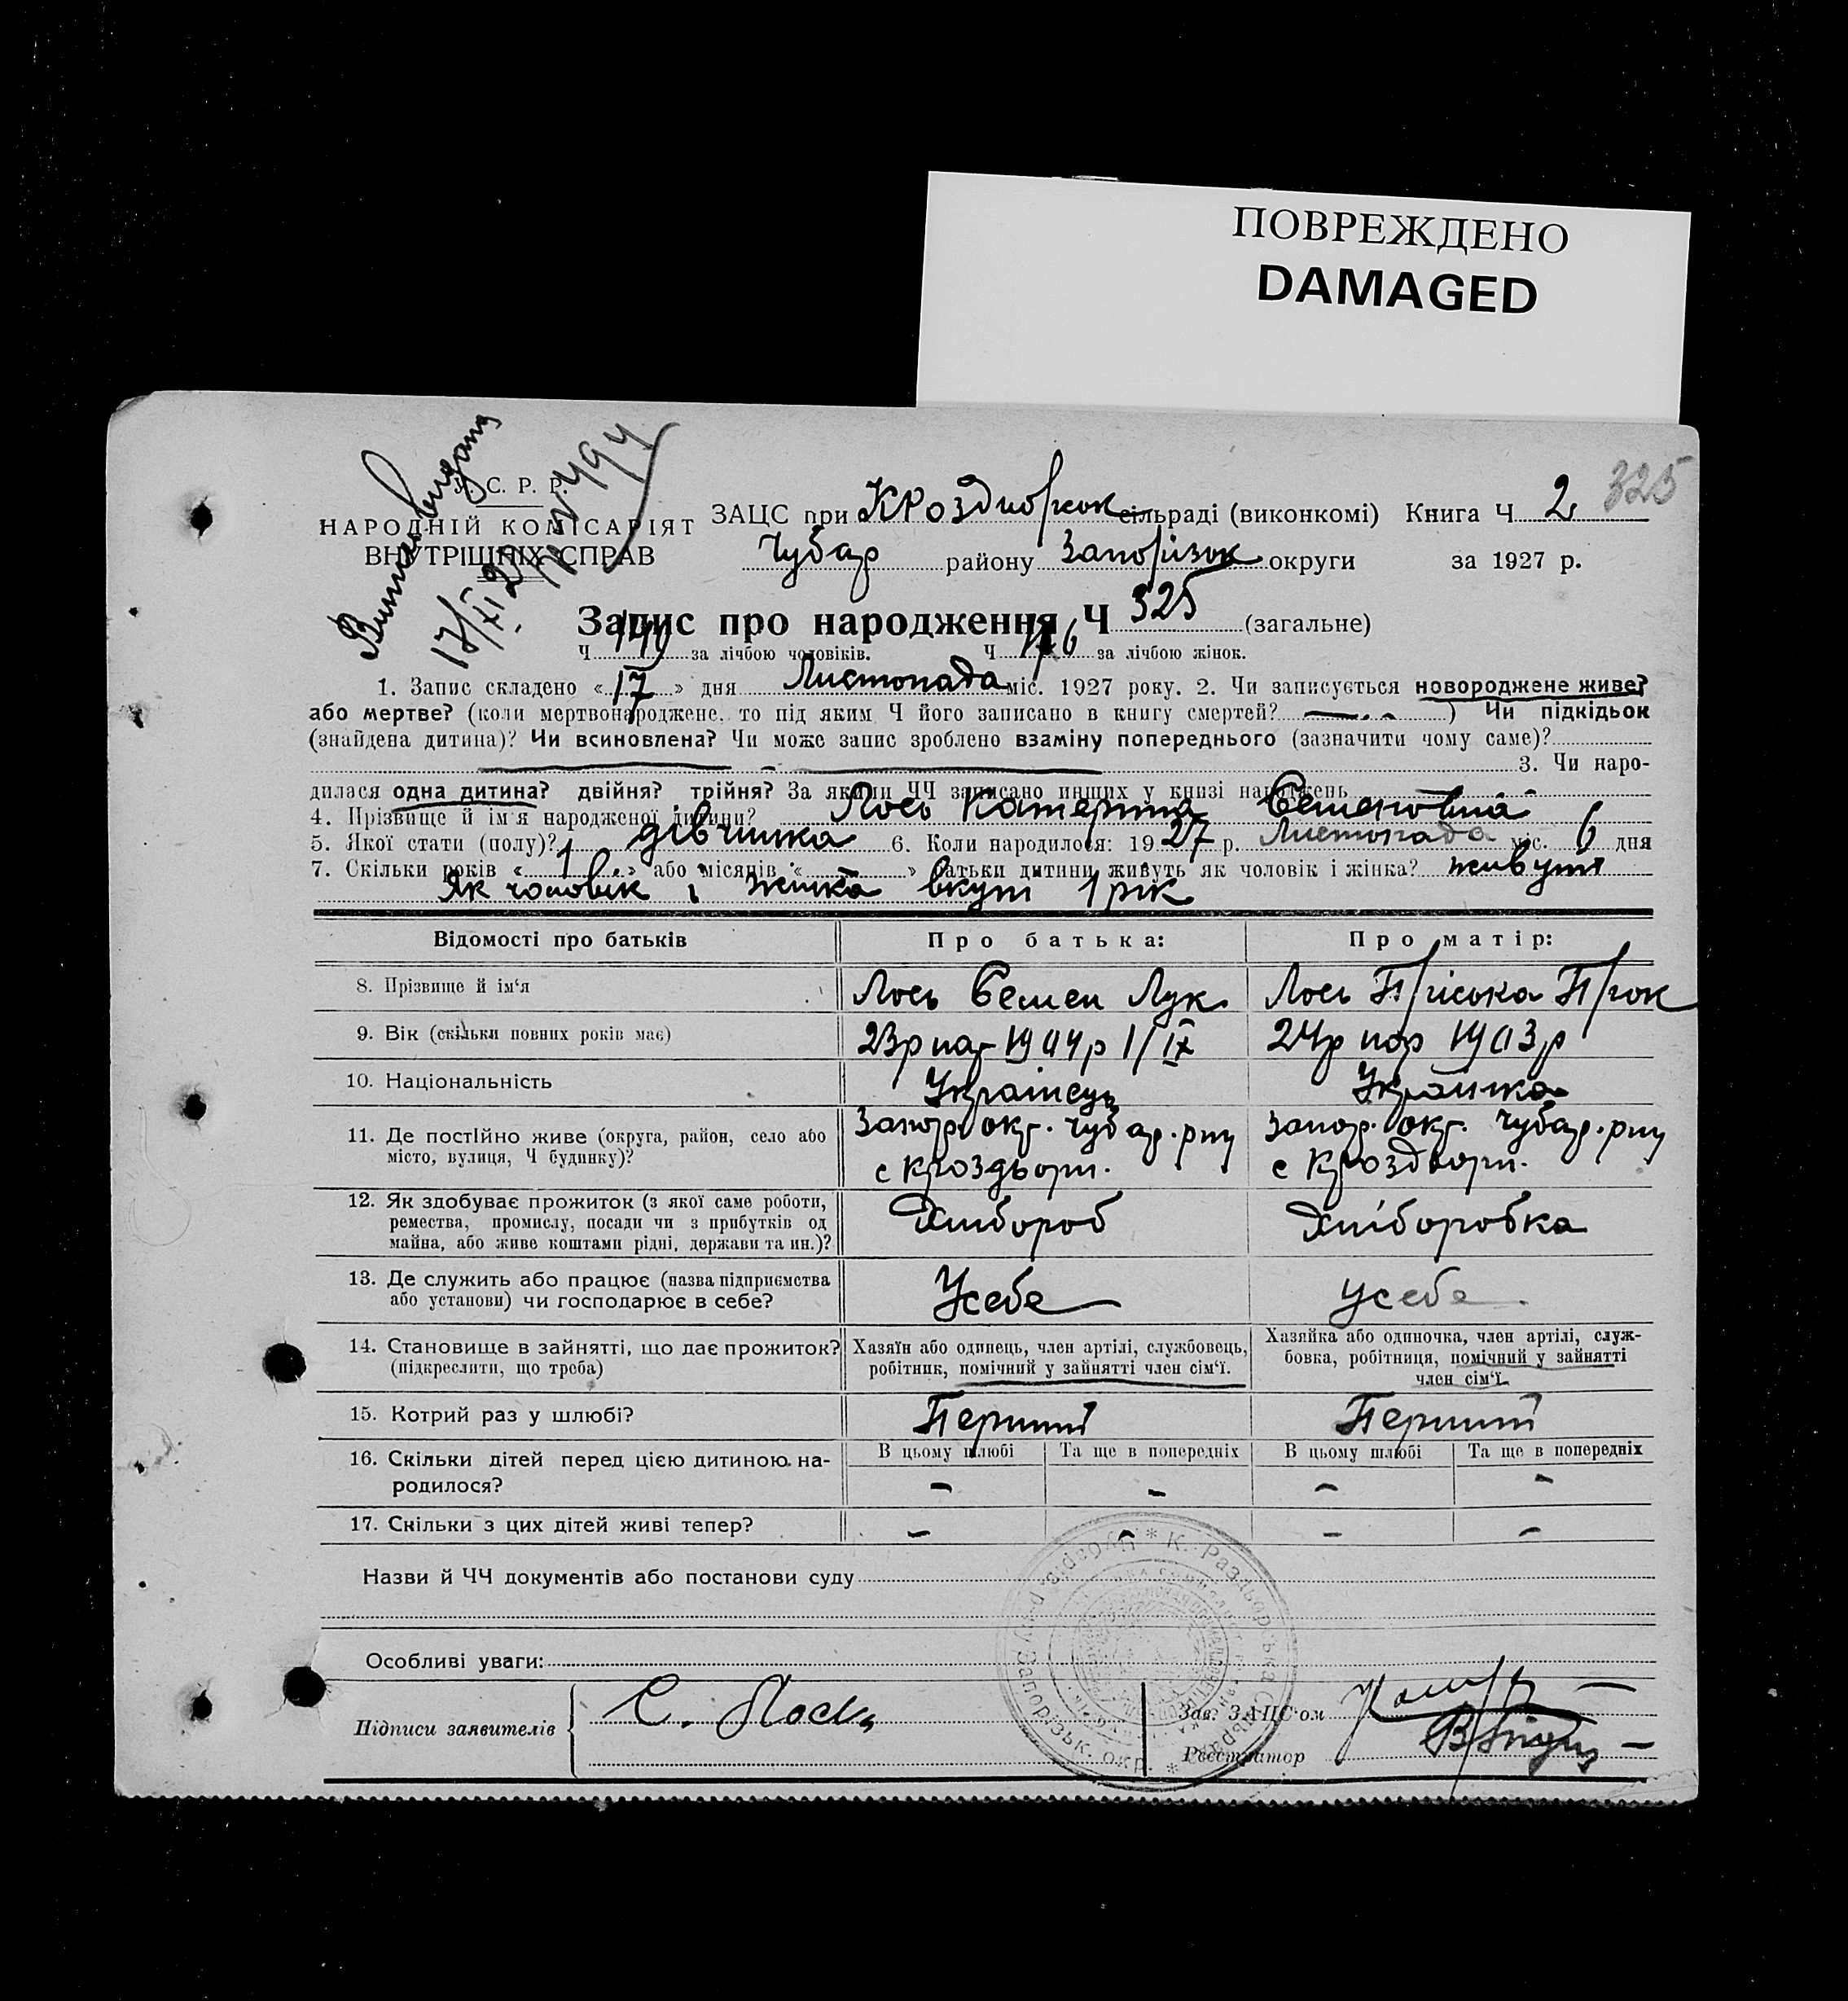 ПОВРЕЖДЕНО
DAMAGED
325
Витяг видано
17/XI 27 N 494
У. С. Р. Р.
НАРОДНІЙ КОМІСАРІЯТ
ВНУТРІШНІХ СПРАВ
ЗАЦС при КРоздиорськ сільраді (виконкомі) Книга Ч 2
Чубар району Запорізьк округи за 1927 р.
Запис про народження Ч 325 (загальне)
Ч 149 за лічбою чоловіків. Ч 176 за лічбою жінок.
1. Запис складено « 17 » дня Листопада міс. 1927 року. 2. Чи записується новороджене живе?
або мертве? (коли мертвонароджене, то під яким Ч його записано в книгу смертей? —) Чи підкідьок
(знайдена дитина)? Чи всиновлена? Чи може запис зроблено взаміну попереднього (зазначити чому саме)?
3. Чи наро-
дилася одна дитина? двійня? трійня? За якими ЧЧ записано инших у книзі народжень
4. Прізвище й ім'я народженої дитини? Лось Катерина Семеновна
5. Якої стати (полу)? дівчинка 6. Коли народилося: 1927 р. Листопада міс. 6 дня
7. Скільки років « 1 » або місяців « » батьки дитини живуть як чоловік і жінка? живуть
Як чоловік і жінка вкупі 1 рік
Відомості про батьків Про батька: Про матір:
8. Прізвище й ім'я Лось Семен Лук. Лось Пріська Прок
9. Вік (скільки повних років має) 23р нар 1904р 1/IX 24р нар 1903р
10. Національність Українець Українка
11. Де постійно живе (округа, район, село або Запор. окр. Чубар. рну Запор. окр. Чубар. рну
місто, вулиця, Ч будинку)? с Кроздьори. с Кроздори.
12. Як здобуває прожиток (з якої саме роботи, Хлібороб Хліборобка
ремества, промислу, посади чи з прибутків од
майна, або живе коштами рідні, держави та ин.)?
13. Де служить або працює (назва підприємства Усебе усебе
або установи) чи господарює в себе?
14. Становище в зайнятті, що дає прожиток? Хазяїн або одинець, член артілі, службовець, Хазяйка або одиночка, член артілі, служ-
(підкреслити, що треба) робітник, помічний у зайнятті член сім'ї. бовка, робітниця, помічний у зайнятті
член сім'ї.
15. Котрий раз у шлюбі? Перший Перший
16. Скільки дітей перед цією дитиною на- В цьому шлюбі Та ще в попередніх В цьому шлюбі Та ще в попередніх
родилося? – – – –
17. Скільки з цих дітей живі тепер? – – – –
Назви й ЧЧ документів або постанови суду
Особливі уваги:
Підписи заявителів С. Лось
Зав. ЗАЦС'ом
Реєстратор
* К. Раздьорська Сільрада * Чубарів. району Запорізьк. окр.